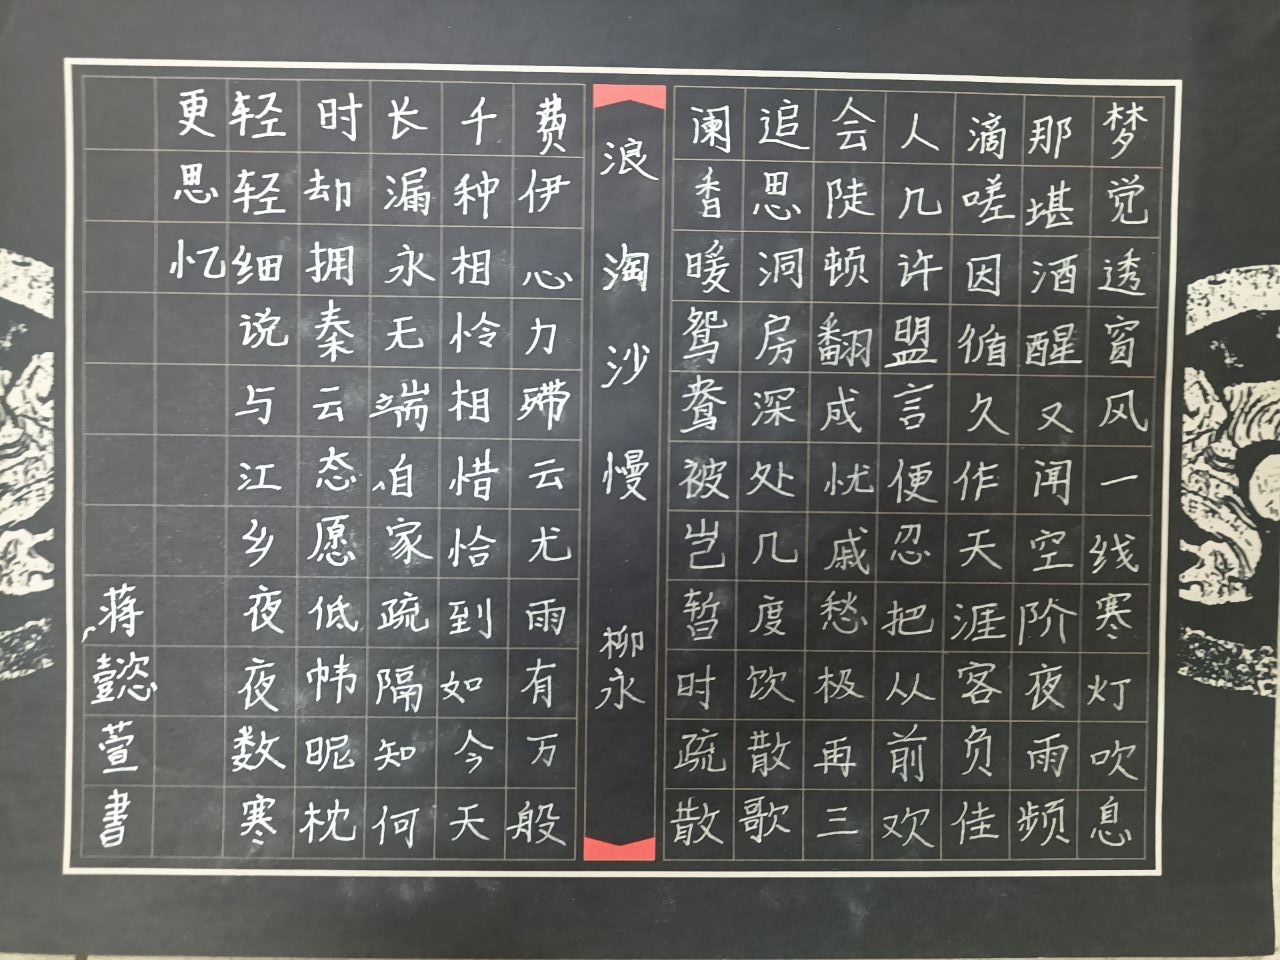 梦觉透窗风一线寒灯吹息
那堪酒醒又闻空阶夜雨频
滴嗟因循久作天涯客负佳
人几许盟言便忍把从前欢
会陡顿翻成忧戚愁极再三
追思洞房深处几度饮散歌
阑香暖鸳鸯被岂暂时疏散
浪淘沙慢 柳永
费伊心力殢云尤雨有万般
千种相怜相惜恰到如今天
长漏永无端自家疏隔知何
时却拥秦云态愿低帏昵枕
轻轻细说与江乡夜夜数寒
更思忆
蒋懿萱書